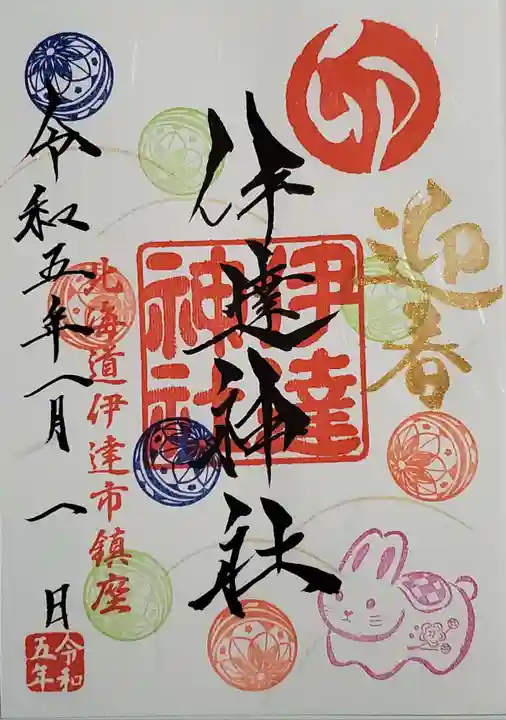 卯
迎春
伊達神社
伊達
神社
北海道伊達市鎮座
令和五年一月一日
令和
五年